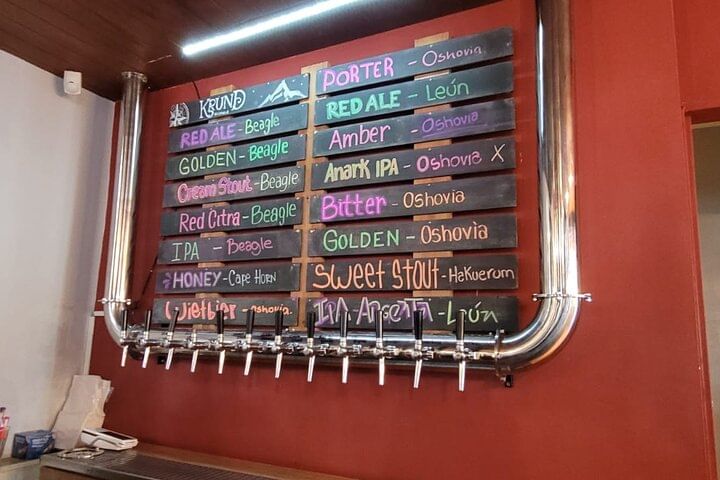 KRUND
RED ALE - Beagle
GOLDEN - Beagle
Cream Stout - Beagle
Red Citra - Beagle
IPA - Beagle
HONEY - Cape Horn
Wietbier - oshovia.
PORTER - Oshovia
RED ALE - Leún
Amber - Oshovia
Anark IPA - Oshovia X
Bitter - Oshovia
GOLDEN - Oshovia
Sweet Stout - Hekuerum
IPA - Leún